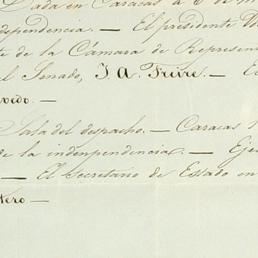 Dada en Caracas á 6 de m
dependencia. — El presidente
te de la Cámara de Represen
el Senado, J. A. Freire. — E
vedo. —
Sala del despacho. — Caracas
de la indenpendencia. — Eje
— El Secretario de Estado en
tero —